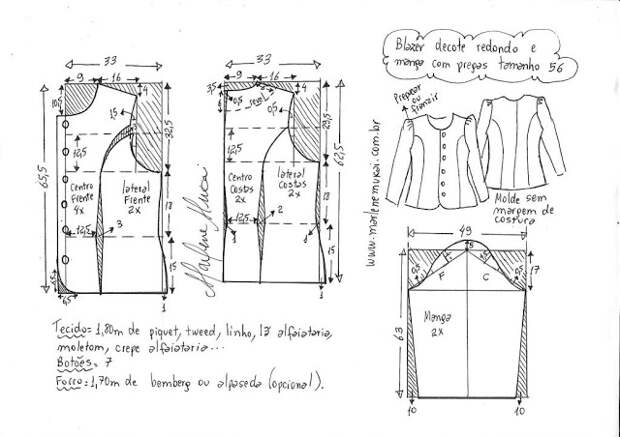 Blazer decote redondo e
manga com pregas tamanho 56
Pregear
ou
franzir
Molde sem
margem de
costura
www.marlenemukai.com.br
Marlene Mukai
33
9
16
4
10,5
15
32,5
12,5
65,5
Centro
Frente
4x
lateral
Frente
2x
18
12,5
3
15
4,5
1
33
9
16
4
3,5
0,5
0,5
29,5
12,5
62,5
Centro
Costas
2x
lateral
Costas
2x
18
12,5
2
1
1
15
1
49
0,5
0,5
17
F
C
Manga
2x
63
10
10
Tecido= 1,80m de piquet, tweed, linho, lã alfaiataria,
moletom, crepe alfaiataria...
Botões= 7
Forro= 1,70m de bemberg ou alpaseda (opcional).